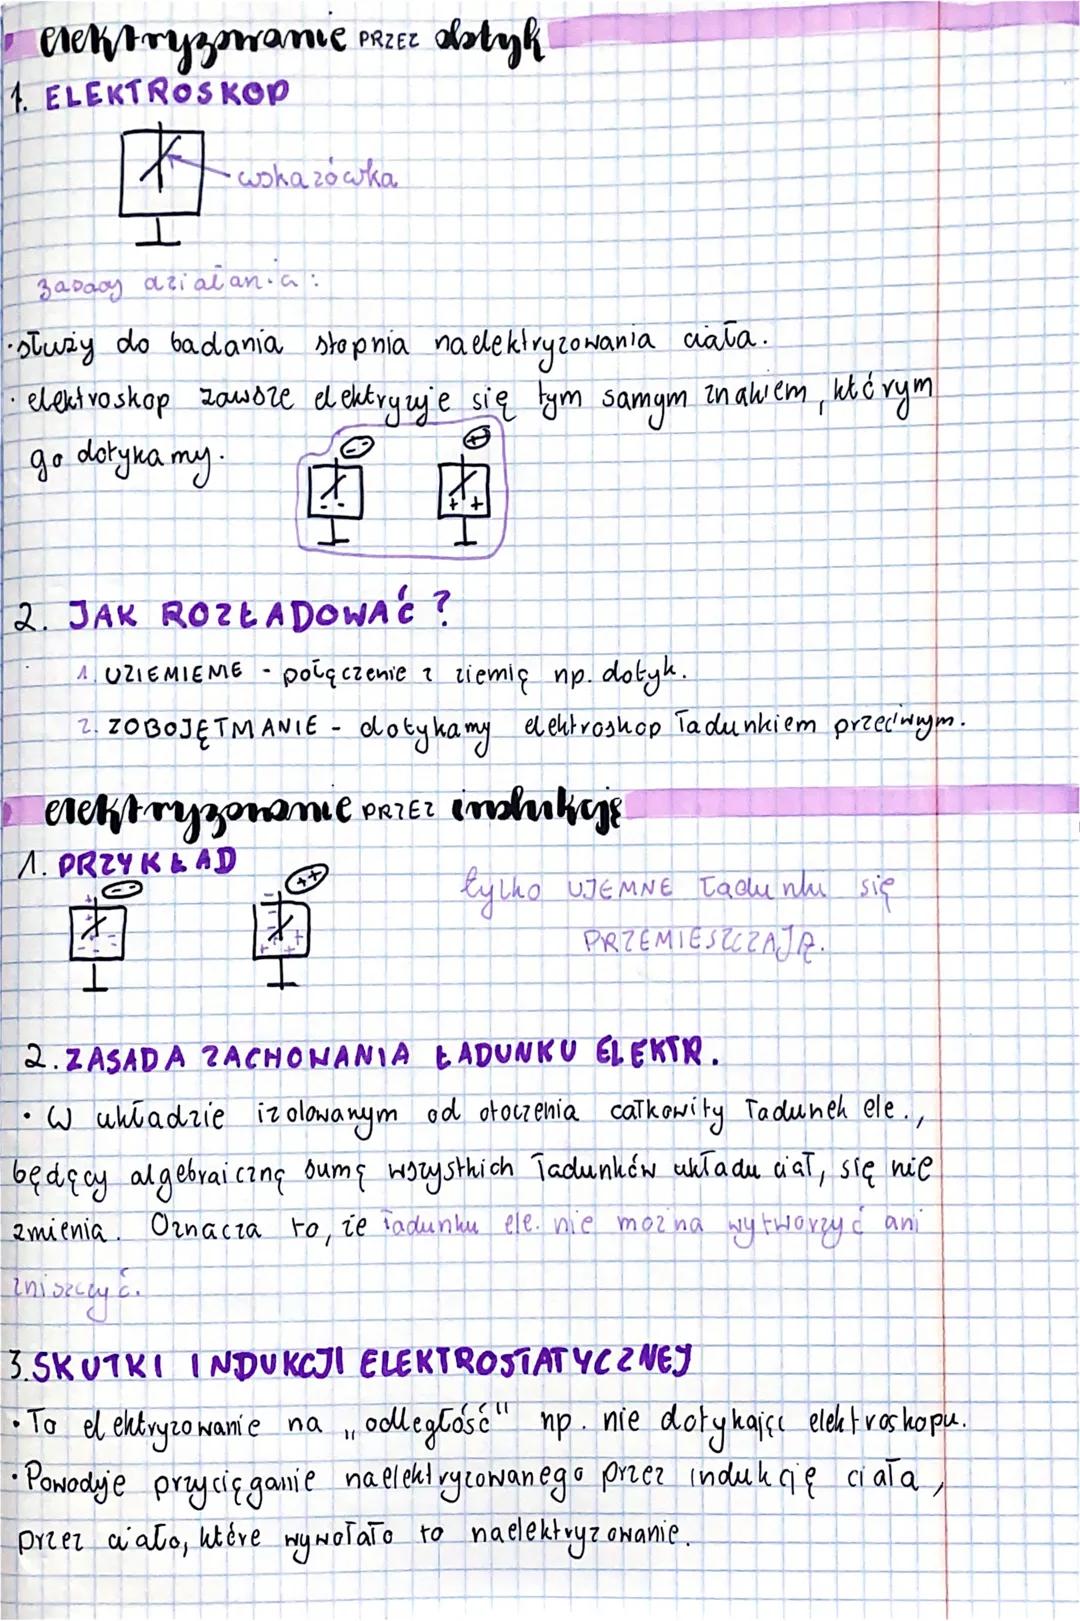 elektryzowanie PRZEZ dotyk
1. ELEKTROSKOP
wskazówka
zasady działania:
• służy do badania stopnia naelektryzowania ciała.
• elektroskop zawsze elektryzuje się tym samym znakiem, którym
go dotykamy.
2. JAK ROZŁADOWAĆ?
1. UZIEMIENIE - połączenie z ziemią np. dotyk.
2. ZOBOJĘTNIANIE - dotykamy elektroskop ładunkiem przeciwnym.
elektryzowanie PRZEZ indukcję
1. PRZYKŁAD
tylko UJEMNE ładunku się
PRZEMIESZCZAJĄ.
2. ZASADA ZACHOWANIA ŁADUNKU ELEKTR.
• W układzie izolowanym od otoczenia całkowity ładunek ele.,
będący algebraiczną sumą wszystkich ładunków układu ciał, się nie
zmienia. Oznacza to, że ładunku ele. nie można wytworzyć ani
zniszczyć.
3. SKUTKI INDUKCJI ELEKTROSTATYCZNEJ
• To elektryzowanie na „odległość" np. nie dotykając elektroskopu.
• Powoduje przyciąganie naelektryzowanego przez indukcję ciała,
przez ciało, które wywołało to naelektryzowanie.